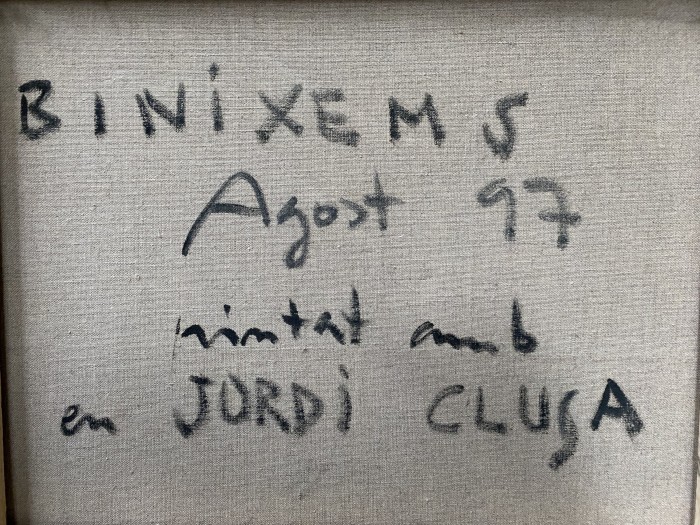 BINIXEMS
Agost 97
pintat amb
en JORDI CLUSA